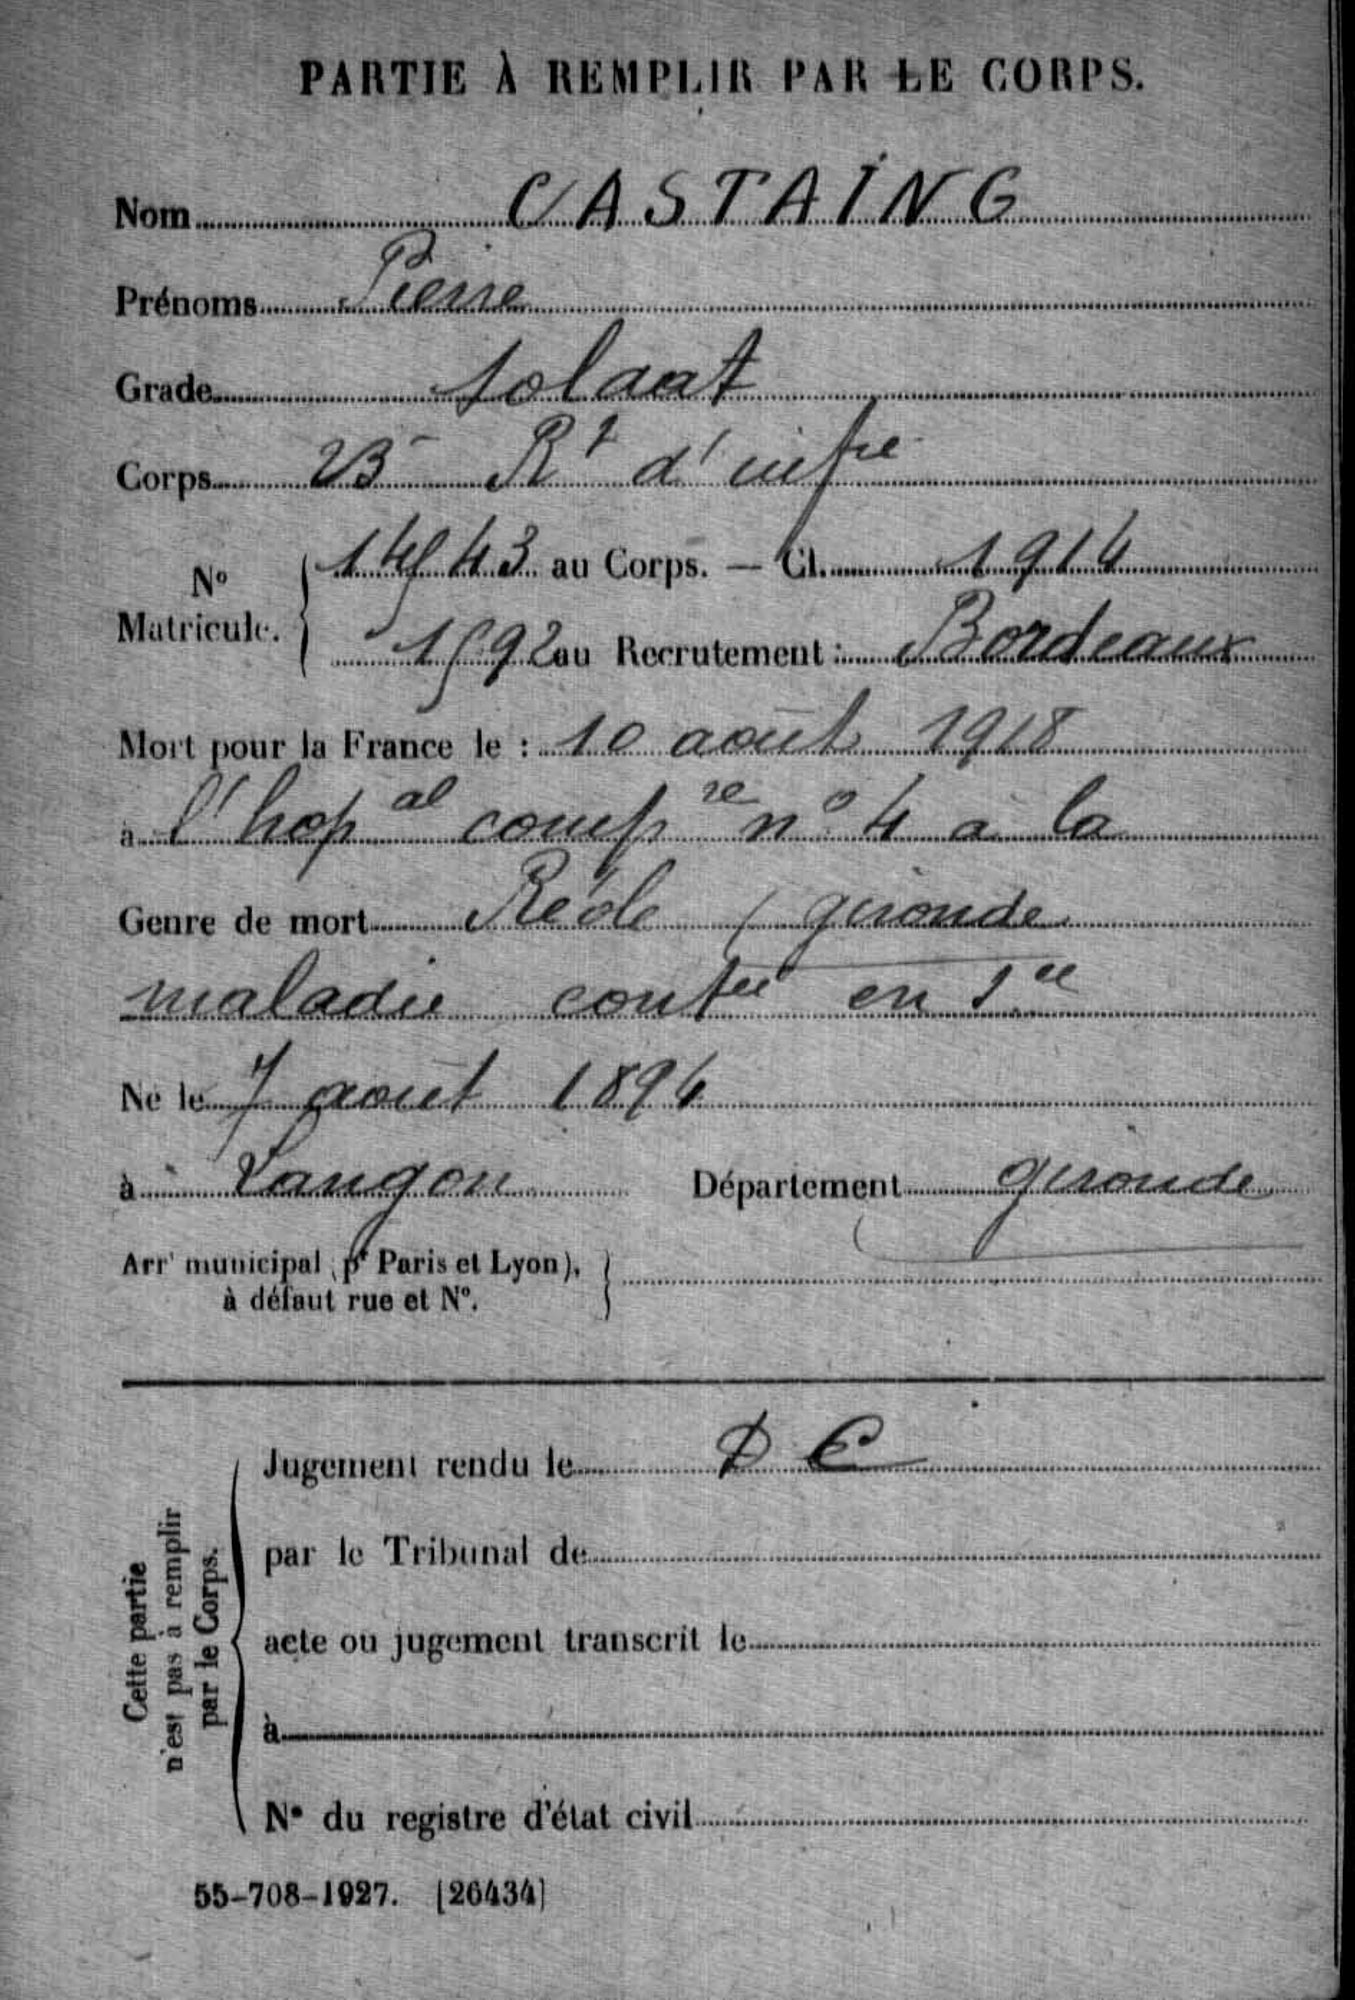 PARTIE À REMPLIR PAR LE CORPS.
Nom CASTAING
Prénoms Pierre
Grade soldat
Corps 23e Rt d'infrie
No Matricule. 14543 au Corps. — Cl. 1914
1592 au Recrutement : Bordeaux
Mort pour la France le : 10 août 1918
à l'hopal comp re no 4 a la
Genre de mort Réole (gironde
maladie contée en s.ce
Né le 7 août 1894
à Langon Département gironde
Arrt municipal (pr Paris et Lyon),
à défaut rue et No.
Cette partie
n'est pas à remplir
par le Corps.
Jugement rendu le D C
par le Tribunal de
acte ou jugement transcrit le
à
No du registre d'état civil
55-708-1927. [26434]